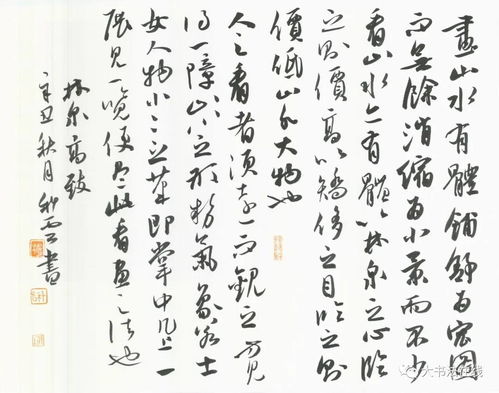 畫山水有體鋪舒為宏圖
而無餘消縮為小景而不少
看山水亦有體以林泉之心臨
之則價高以矯侈之目臨之則
價低山水大物也
人之看者須遠而觀之方見
得一障山川之形勢氣象若士
女人物小小之筆即掌中几上一
展見一覽便盡此看畫之法也
林泉高致
辛丑秋月 書
大书法在线